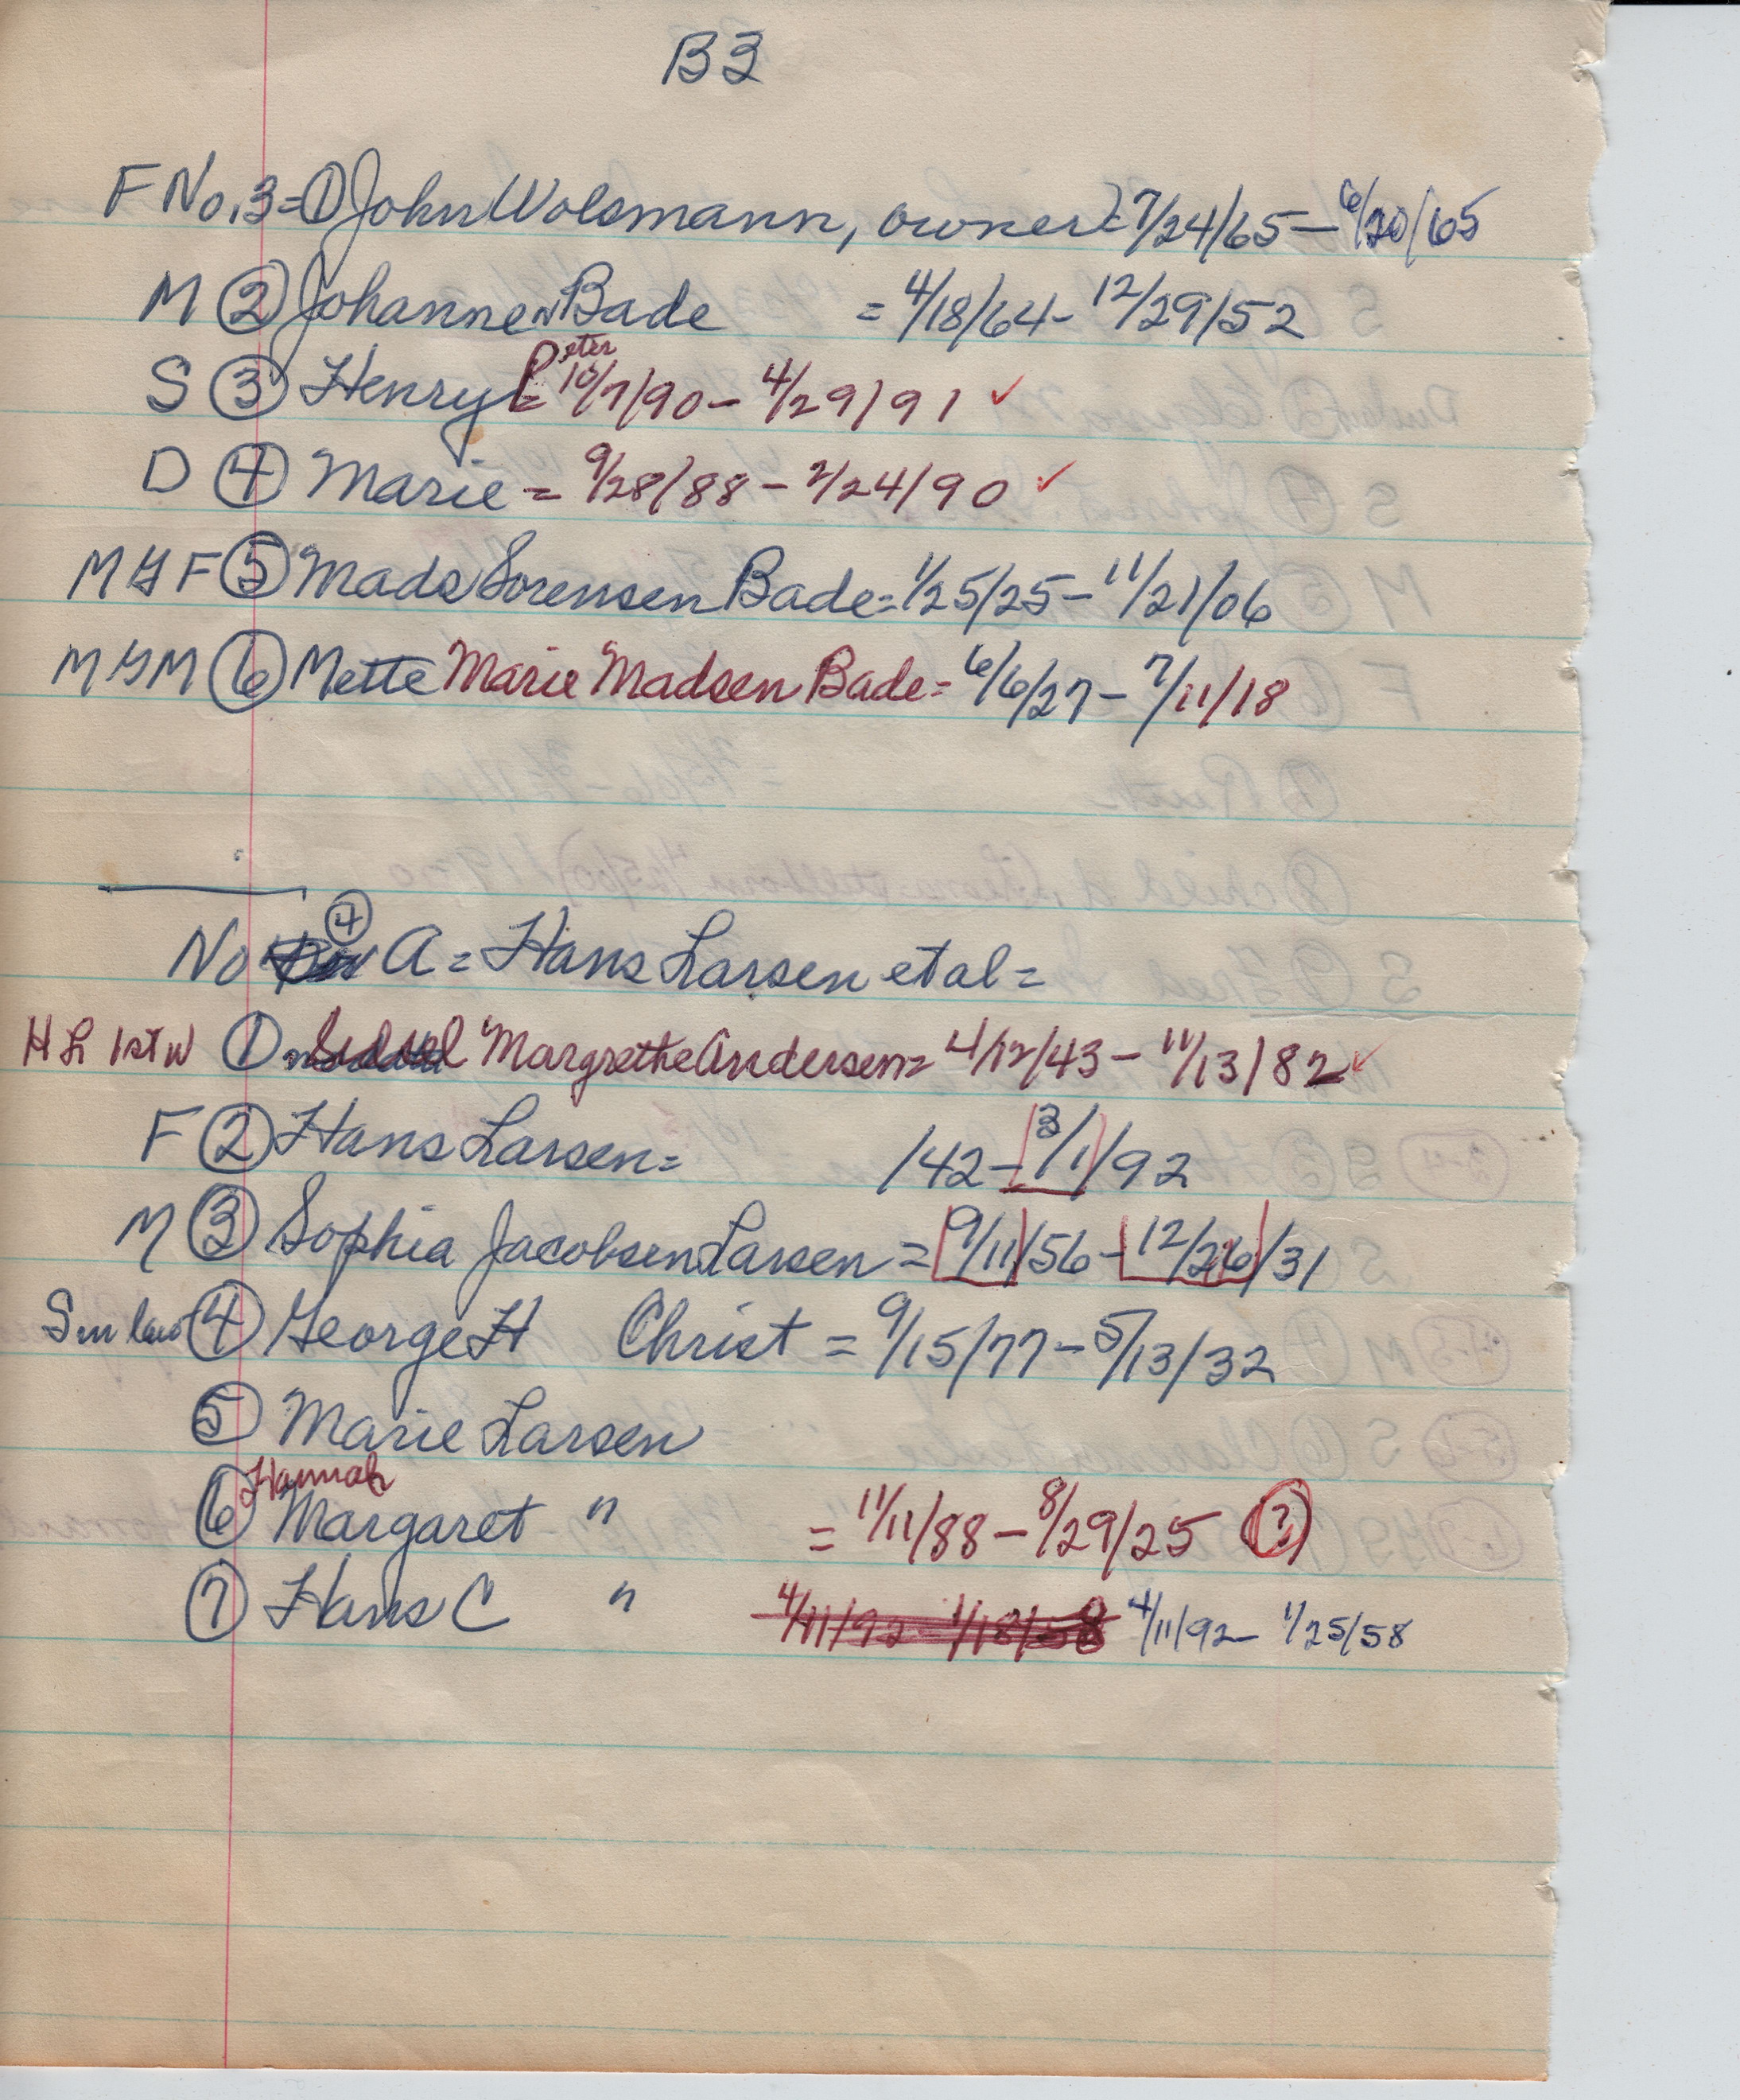 B3
F No. 3 = ① John Wolsmann, owner = 7/24/65 – 6/20/65
M ② Johanne W Bade = 4/18/64 – 12/29/52
Peter
S ③ Henry = 10/7/90 – 4/29/91 ✓
D ④ Marie = 9/28/88 – 2/24/90 ✓
M G F ⑤ Mads Sorensen Bade = 1/25/25 – 11/21/06
M G M ⑥ Mette Marie Madsen Bade = 6/6/27 – 7/11/18
④
No A = Hans Larsen et al =
H L 1st W ① Margrethe Andersen = 4/12/43 – 11/13/82 ✓
F ② Hans Larsen = /42 – 3/1/92
M ③ Sophia Jacobsen Larsen = 9/11/56 – 12/26/31
S in law ④ George H Christ = 9/15/77 – 5/13/32
⑤ Marie Larsen
Hannah
⑥ Margaret " = 11/11/88 – 8/29/25 ?
⑦ Hans C " 4/11/92 – 1/18/58 4/11/92 – 1/25/58